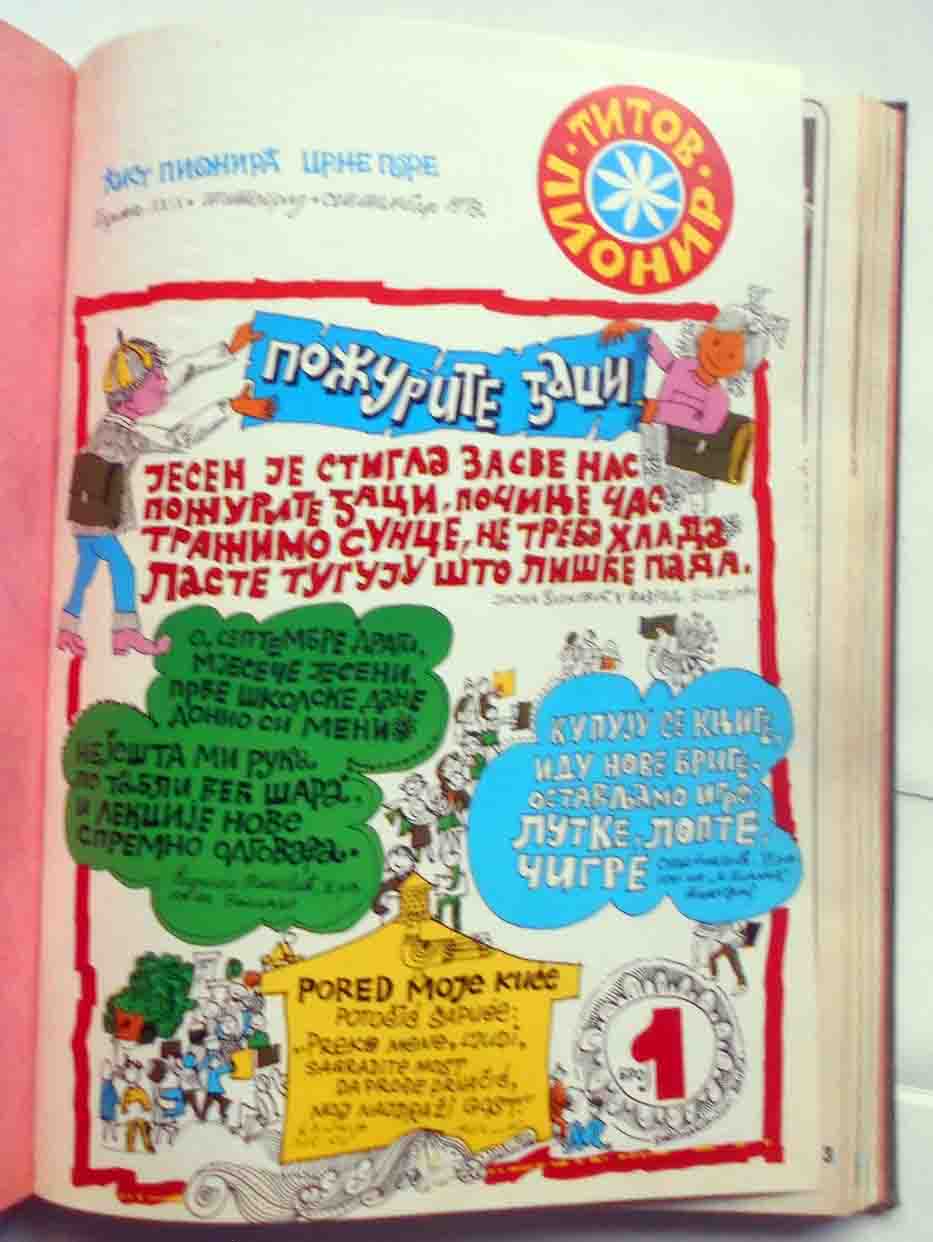 ЛИСТ ПИОНИРА ЦРНЕ ГОРЕ
ТИТОВ
ПИОНИР
ПОЖУРИТЕ ЂАЦИ
ЈЕСЕН ЈЕ СТИГЛА ЗА СВЕ НАС
ПОЖУРИТЕ ЂАЦИ, ПОЧИЊЕ ЧАС
ТРАЖИМО СУНЦЕ, НЕ ТРЕБА ХЛАДА
ЛАСТЕ ТУГУЈУ ШТО ЛИШЋЕ ПАДА.
О, СЕПТЕМБРЕ ДРАГИ,
МЈЕСЕЧЕ ЈЕСЕНИ,
ПРВЕ ШКОЛСКЕ ДАНЕ
ДОНИО СИ МЕНИ
НЕЈОШТА МИ РУКА
ПО ТАБЛИ ВЕЋ ШАРА,
И ЛЕКЦИЈЕ НОВЕ
СПРЕМНО ОДГОВАРА.
КУПУЈУ СЕ КЊИГЕ,
ИДУ НОВЕ БРИГЕ,
ОСТАВЉАМО ИГРЕ
ЛУТКЕ, ЛОПТЕ,
ЧИГРЕ
PORED MOJE KUĆE
POTOČIĆ ŠAPUĆE:
„PREKO MENE, LJUDI,
SAGRADITE MOST
DA PROĐE DRVAČIĆ,
MOJ NAJDRAŽI GOST.“
БРОЈ
1
3